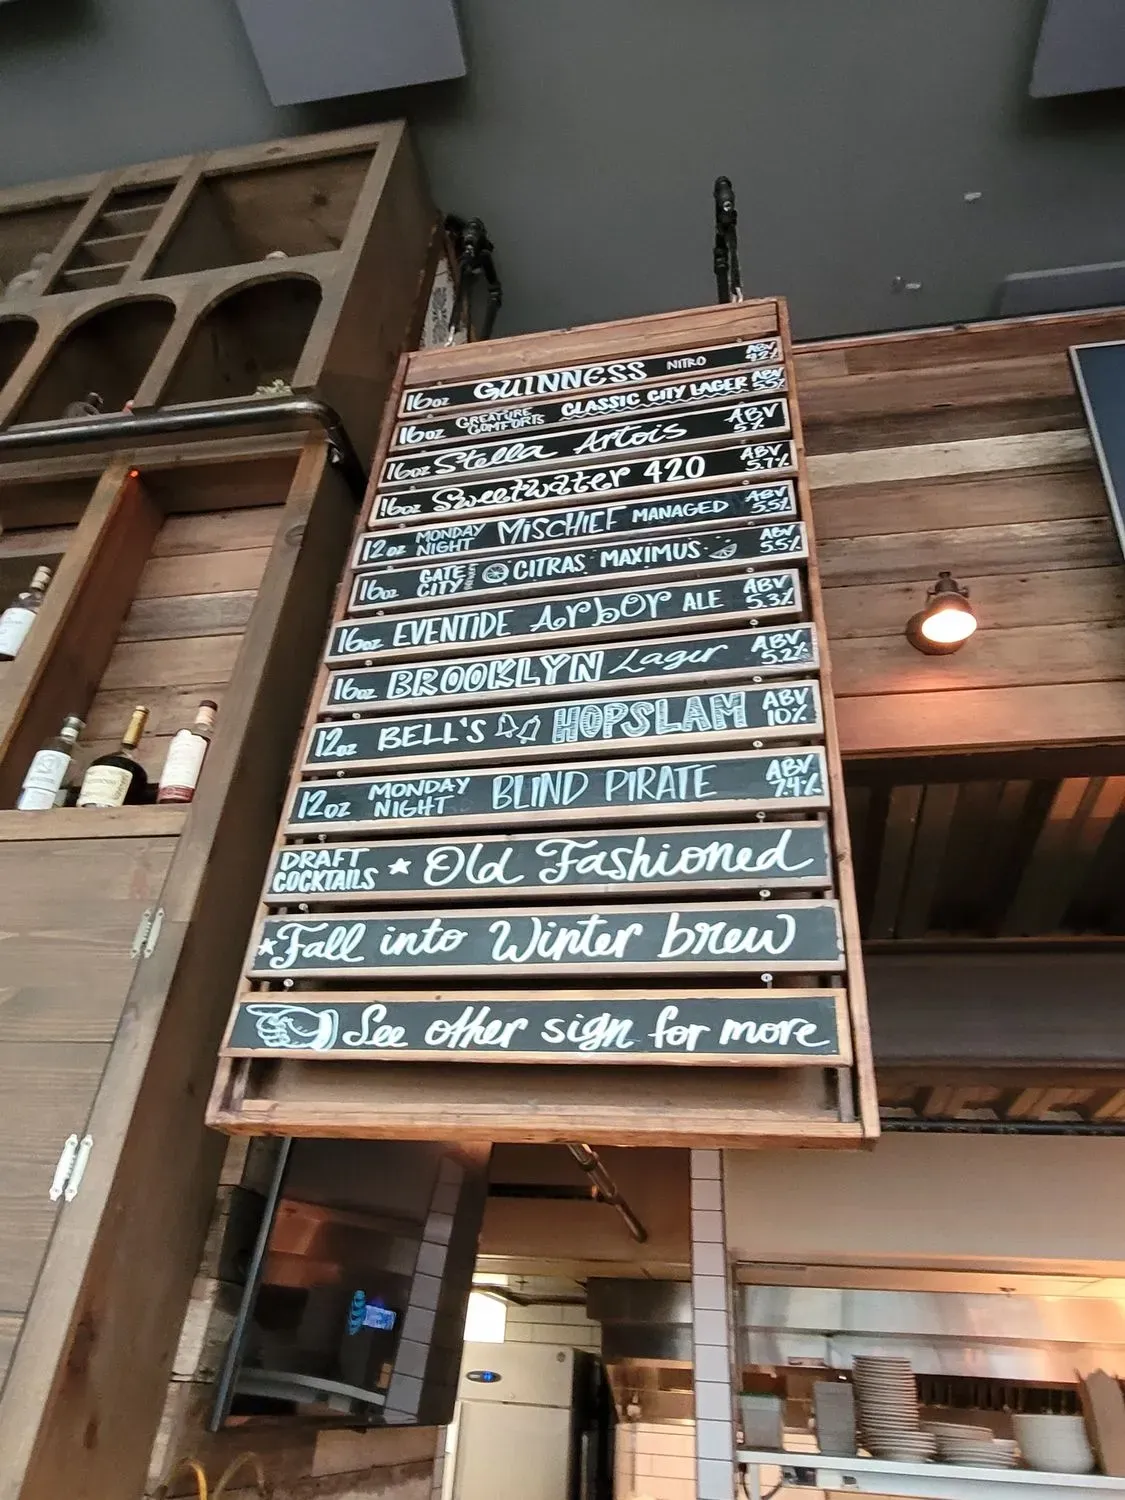 16oz GUINNESS NITRO ABV
16oz CREATURE COMFORTS CLASSIC CITY LAGER ABV 5.5%
16oz Stella Artois ABV 5%
16oz Sweetwater 420 ABV 5.7%
12oz MONDAY NIGHT MISCHIEF MANAGED ABV 5.5%
16oz GATE CITY CITRAS MAXIMUS ABV 5.5%
16oz EVENTIDE Arbor ALE ABV 5.3%
16oz BROOKLYN Lager ABV 5.2%
12oz BELL'S HOPSLAM ABV 10%
12oz MONDAY NIGHT BLIND PIRATE ABV 7.4%
DRAFT COCKTAILS ★ Old Fashioned
★Fall into Winter brew
See other sign for more